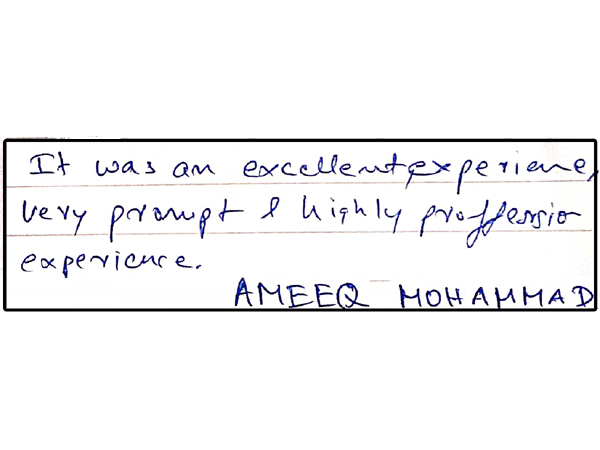 It was an excellent experiene,
very prompt & highly proffessio
experience.
AMEEQ MOHAMMAD